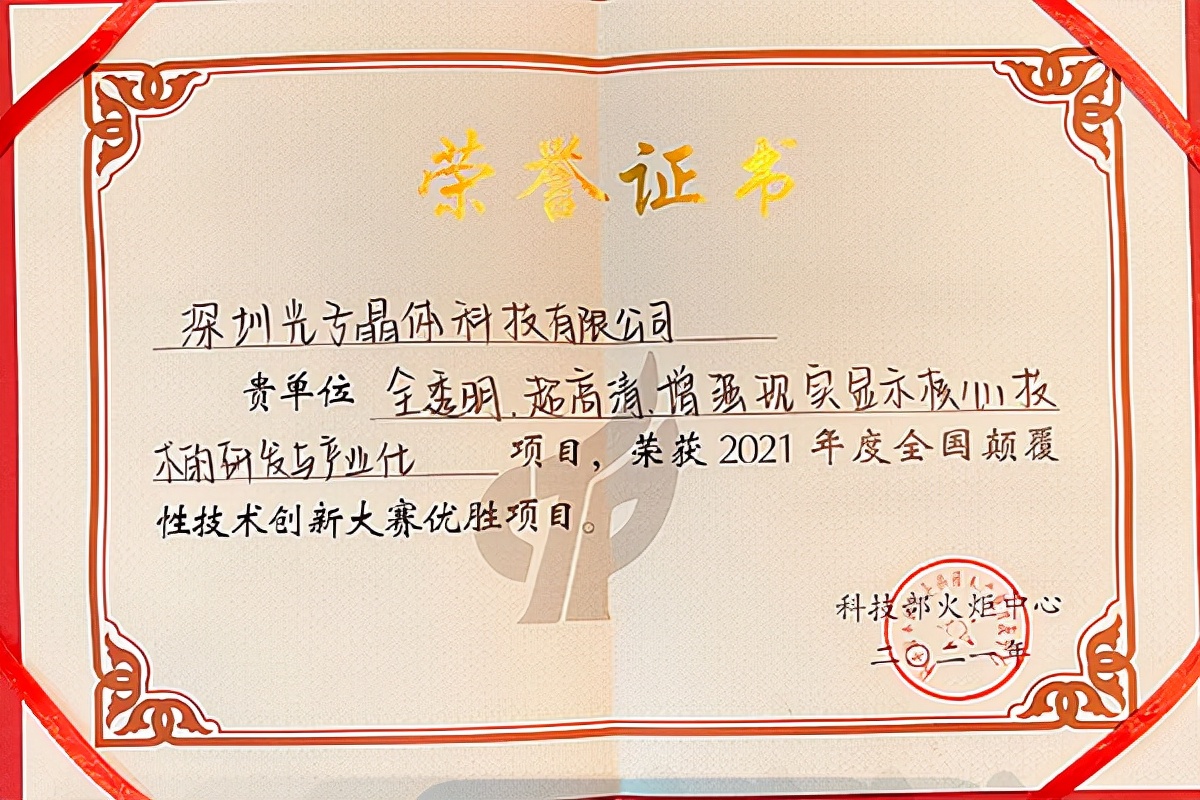 荣誉证书
深圳光方晶体科技有限公司
贵单位 全透明、超高清、增强现实显示核心技
术的研发与产业化 项目，荣获 2021 年度全国颠覆
性技术创新大赛优胜项目。
科技部火炬中心
二〇二一年